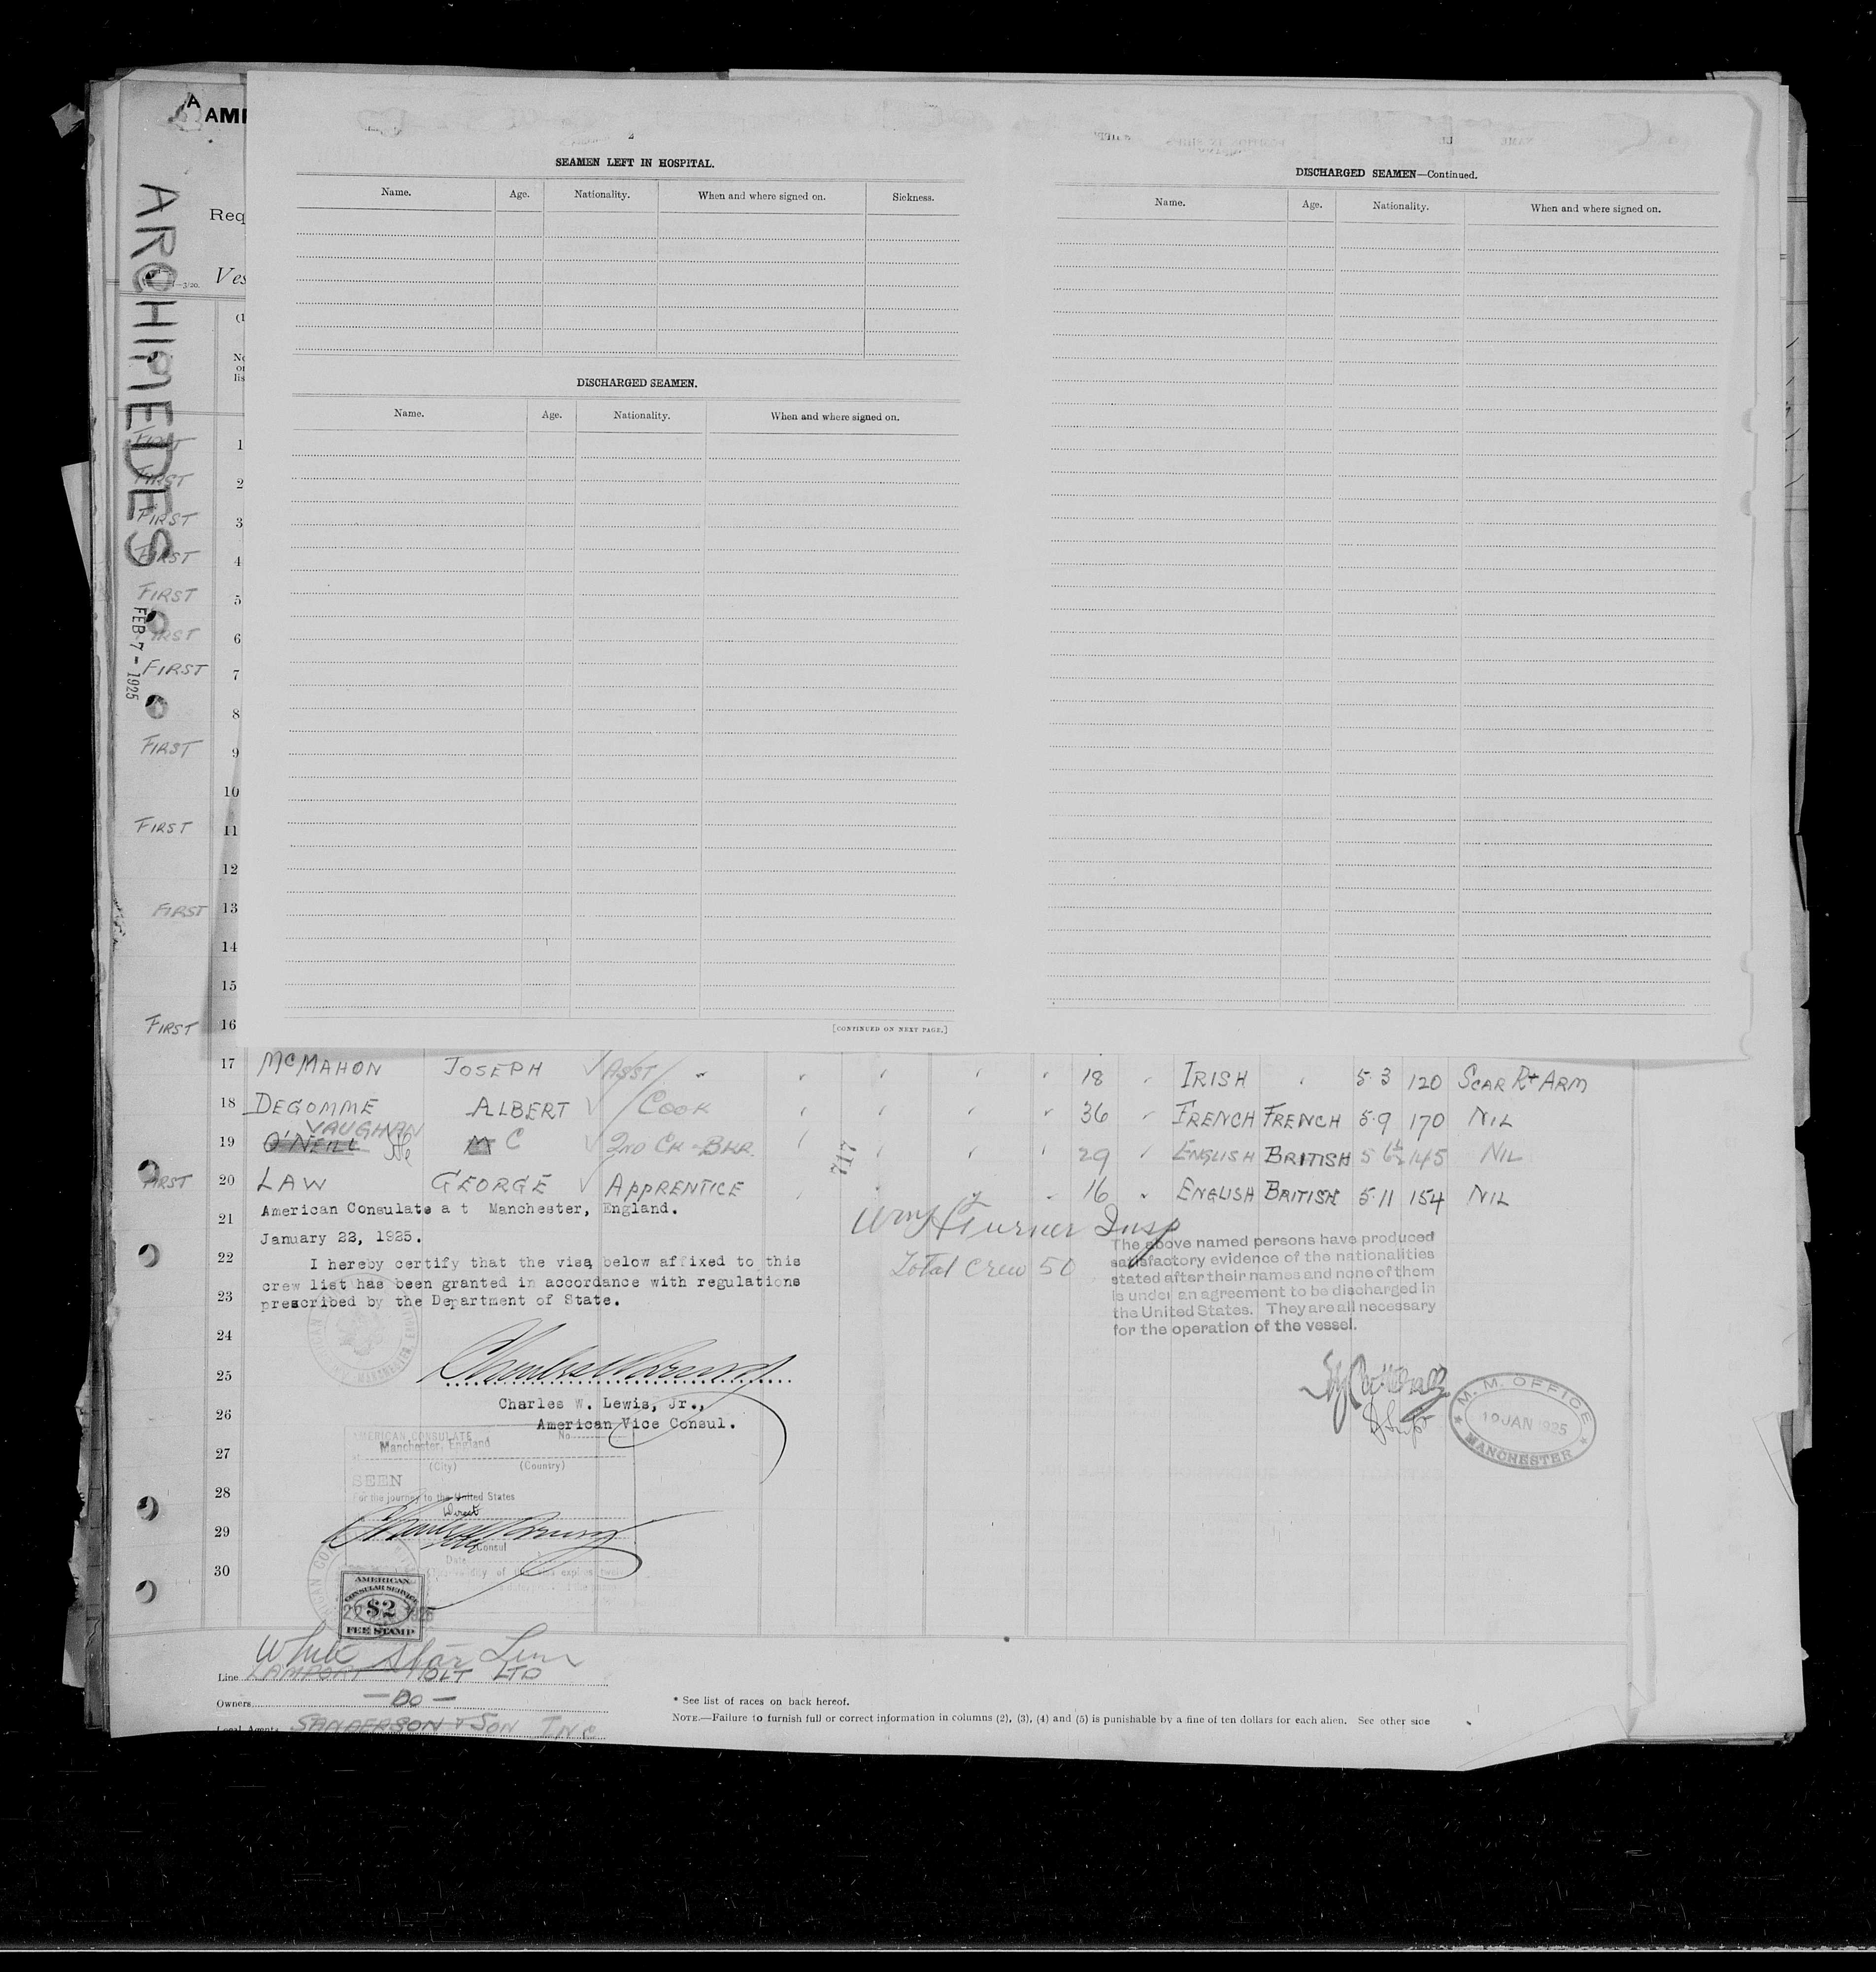 A
AME
ARCHIMEDES
FEB 7 - 1925
Req
Ves
(1
No
on
lis
2
SEAMEN LEFT IN HOSPITAL.
Name. Age. Nationality. When and where signed on. Sickness.
DISCHARGED SEAMEN.
Name. Age. Nationality. When and where signed on.
[CONTINUED ON NEXT PAGE.]
DISCHARGED SEAMEN—Continued.
Name. Age. Nationality. When and where signed on.
FIRST 1
FIRST 2
FIRST 3
FIRST 4
FIRST 5
FIRST 6
FIRST 7
8
FIRST 9
10
FIRST 11
12
FIRST 13
14
15
FIRST 16
17 McMAHON JOSEPH ASST " 18 " IRISH " 5·3 120 SCAR Rt ARM
18 DEGOMME ALBERT COOK 36 " FRENCH FRENCH 5·9 170 NIL
VAUGHAN
19 O'NEILL M C 2ND CK - BKR. 29 " ENGLISH BRITISH 5 6½ 145 NIL
717
FIRST 20 LAW GEORGE APPRENTICE 16 " ENGLISH BRITISH 5·11 154 NIL
American Consulate a t Manchester, England.
21
January 22, 1925.
22 I hereby certify that the visa below affixed to this
crew list has been granted in accordance with regulations
23 prescribed by the Department of State.
Turner Insp
Total Crew 50
The above named persons have produced
satisfactory evidence of the nationalities
stated after their names and none of them
is under an agreement to be discharged in
the United States. They are all necessary
for the operation of the vessel.
24
25
Charles W. Lewis, Jr.,
26 American Vice Consul.
M. M. OFFICE
19 JAN 1925
MANCHESTER
AMERICAN CONSULATE No
27 at Manchester, England
(City) (Country)
SEEN
28 For the journey to the United States
Direct
29
Consul
Date
30
AMERICAN
CONSULAR SERVICE
$2
FEE STAMP
White Star Line
Line LAMPORT HOLT LTD
Owners — Do —
Local Agents SANDERSON & SON INC
* See list of races on back hereof.
NOTE.—Failure to furnish full or correct information in columns (2), (3), (4) and (5) is punishable by a fine of ten dollars for each alien. See other side